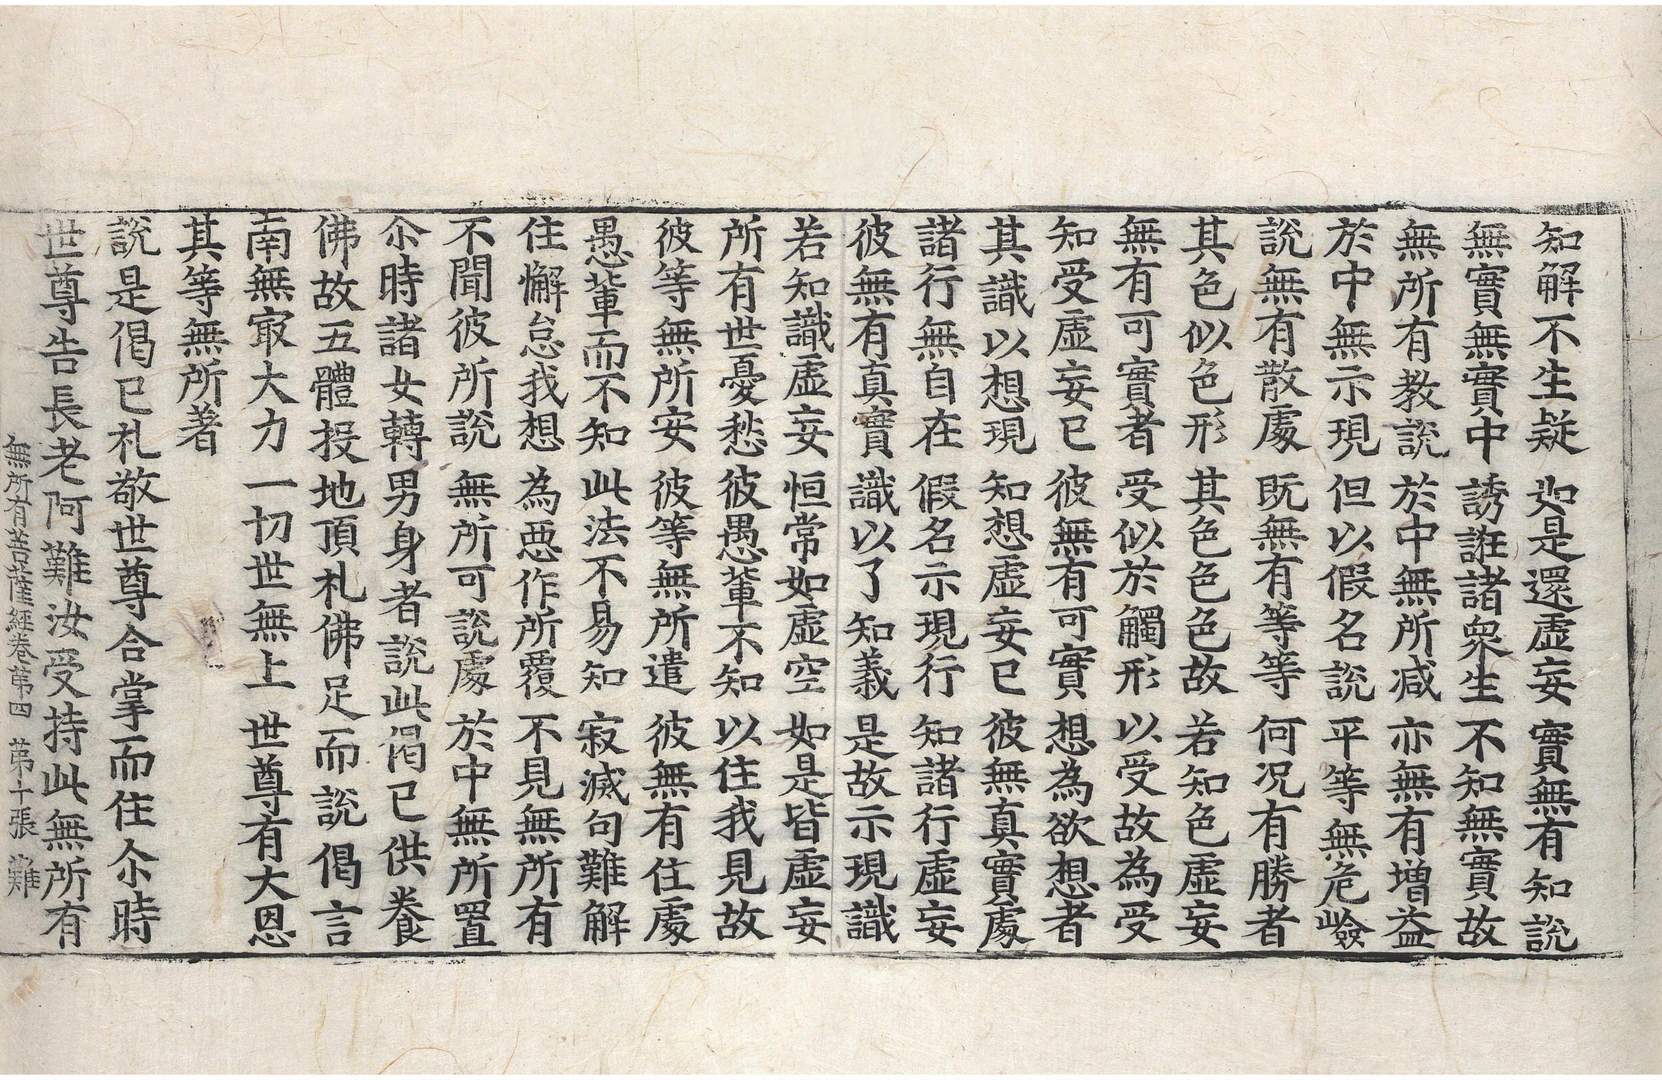 知解不生疑　如是還虛妄　實無有知說
無實無實中　誘誑諸衆生　不知無實故
無所有教說　於中無所减　亦無有增益
於中無示現　但以假名說　平等無危嶮
說無有散處　既無有等等　何況有勝者
其色似色形　其色色色故　若知色虛妄
無有可實者　受似於觸形　以受故為受
知受虛妄已　彼無有可實　想為欲想者
其識以想現　知想虛妄已　彼無真實處
諸行無自在　假名示現行　知諸行虛妄
彼無有真實　識以了知義　是故示現識
若知識虛妄　恒常如虛空　如是皆虛妄
所有世憂愁　彼愚輩不知　以住我見故
彼等無所安　彼等無所遣　彼無有住處
愚輩而不知　此法不易知　寂滅句難解
住懈怠我想　為惡作所覆　不見無所有
不聞彼所說　無所可說處　於中無所置
尒時諸女轉男身者說此偈已供養
佛故五體投地頂礼佛足而說偈言
南無㝡大力　一切世無上　世尊有大恩
其等無所著
說是偈已礼敬世尊合掌而住尒時
世尊告長老阿難汝受持此無所有
無所有菩薩經卷第四　第十張　難